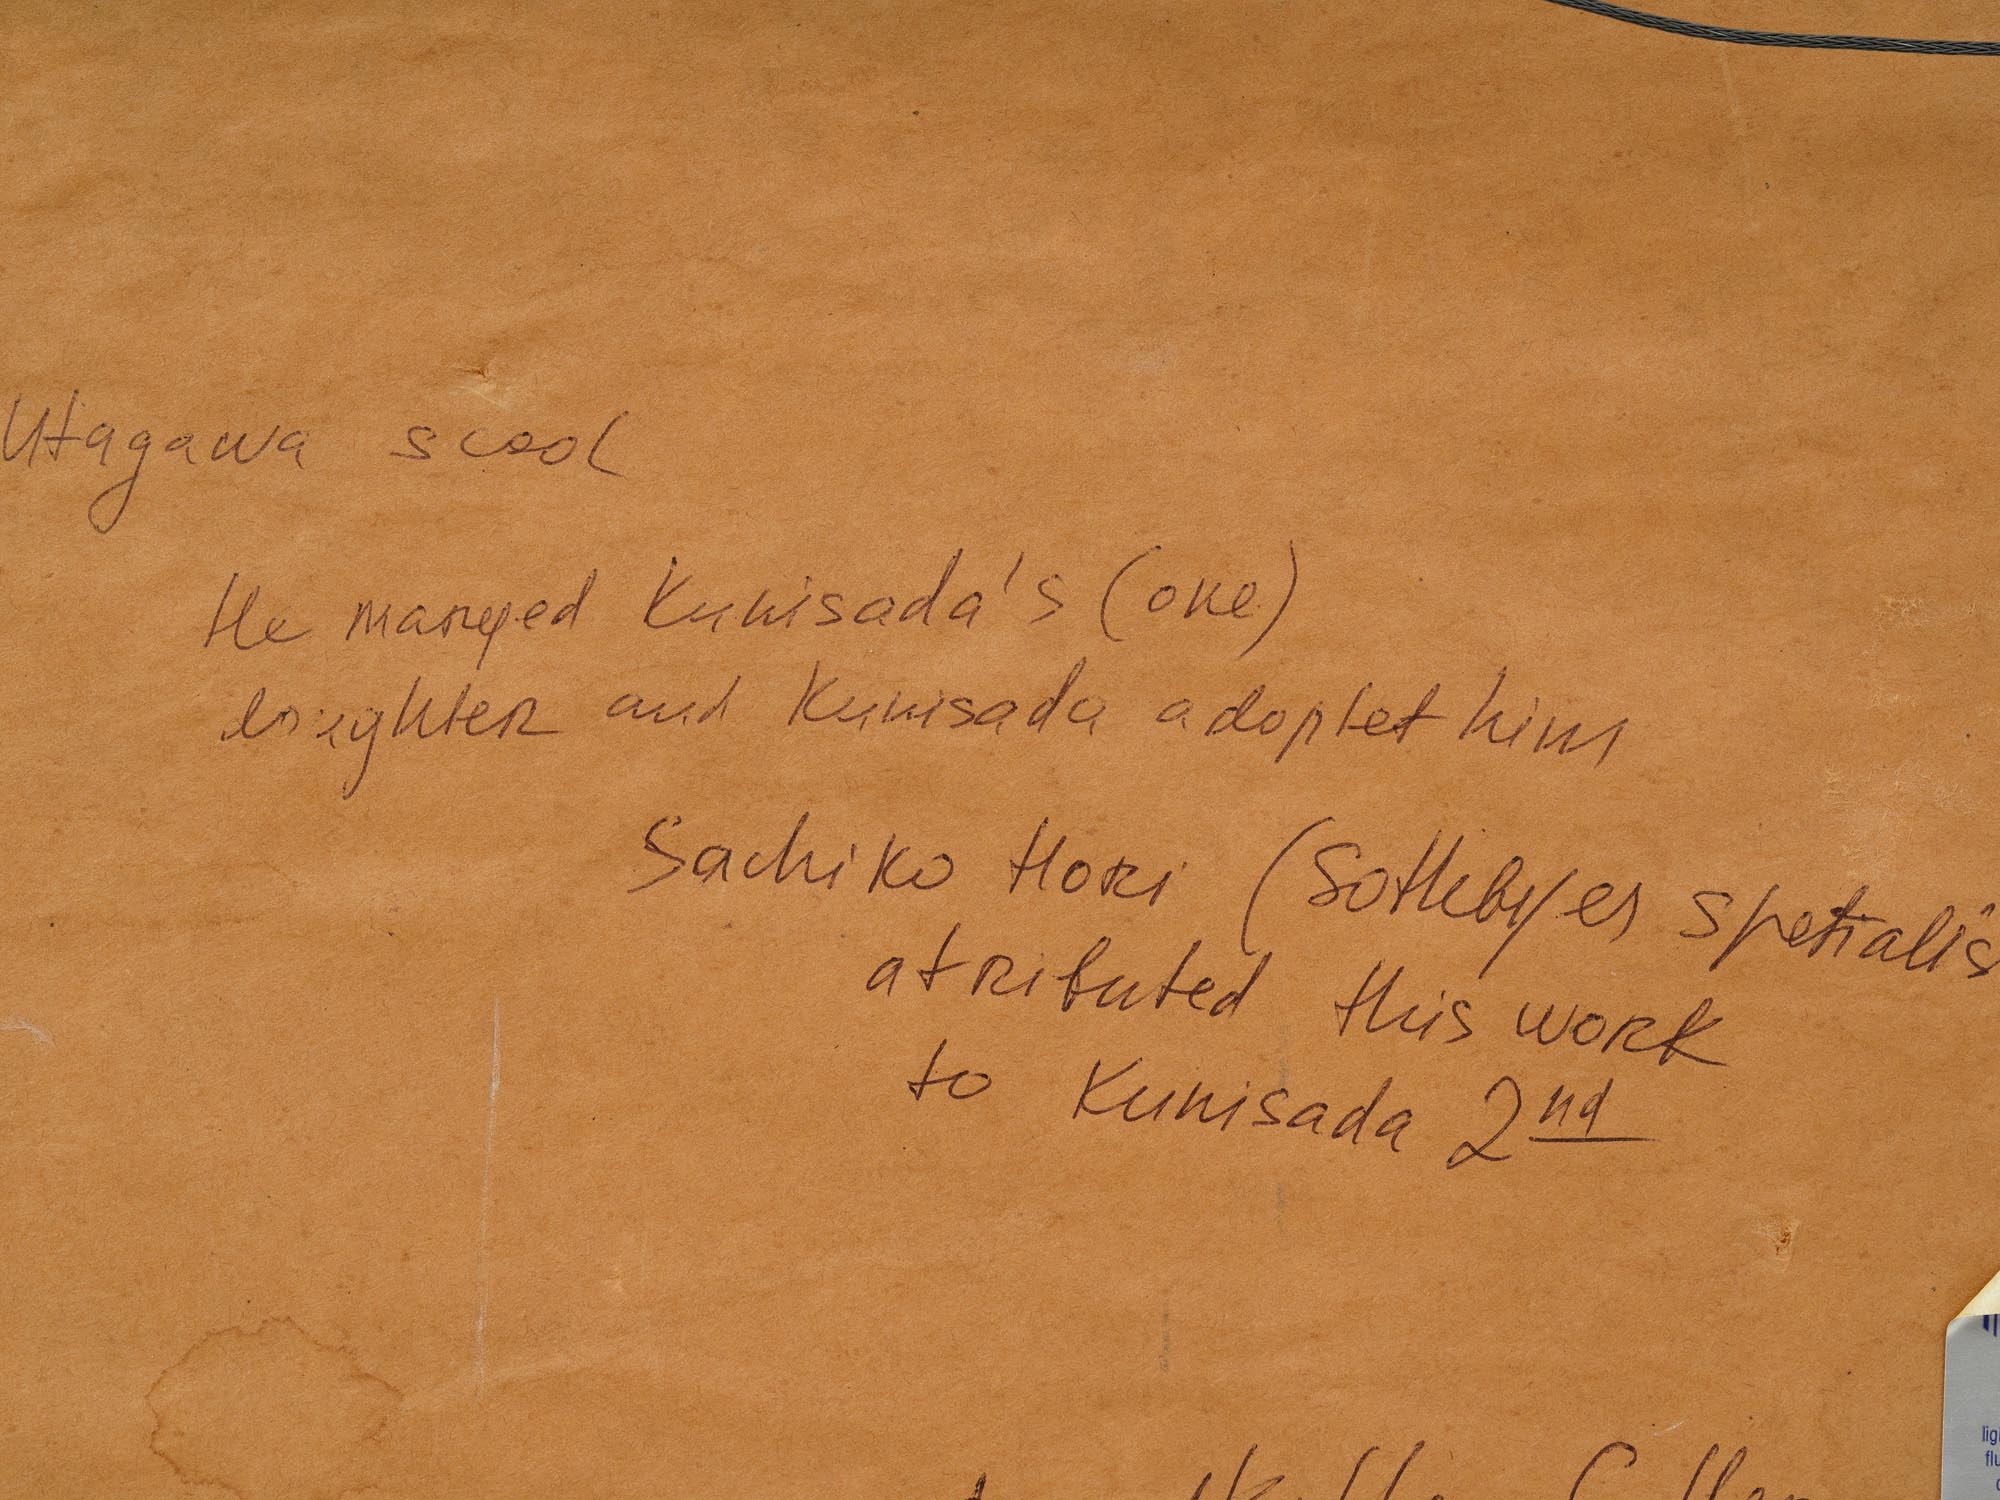 Utagawa scool
He marryed Kunisada's (one)
doughter and Kunisada adoptet him
Sachiko Hori (Sothebyes spetialis
atributed this work
to Kunisada 2nd
lig
flu